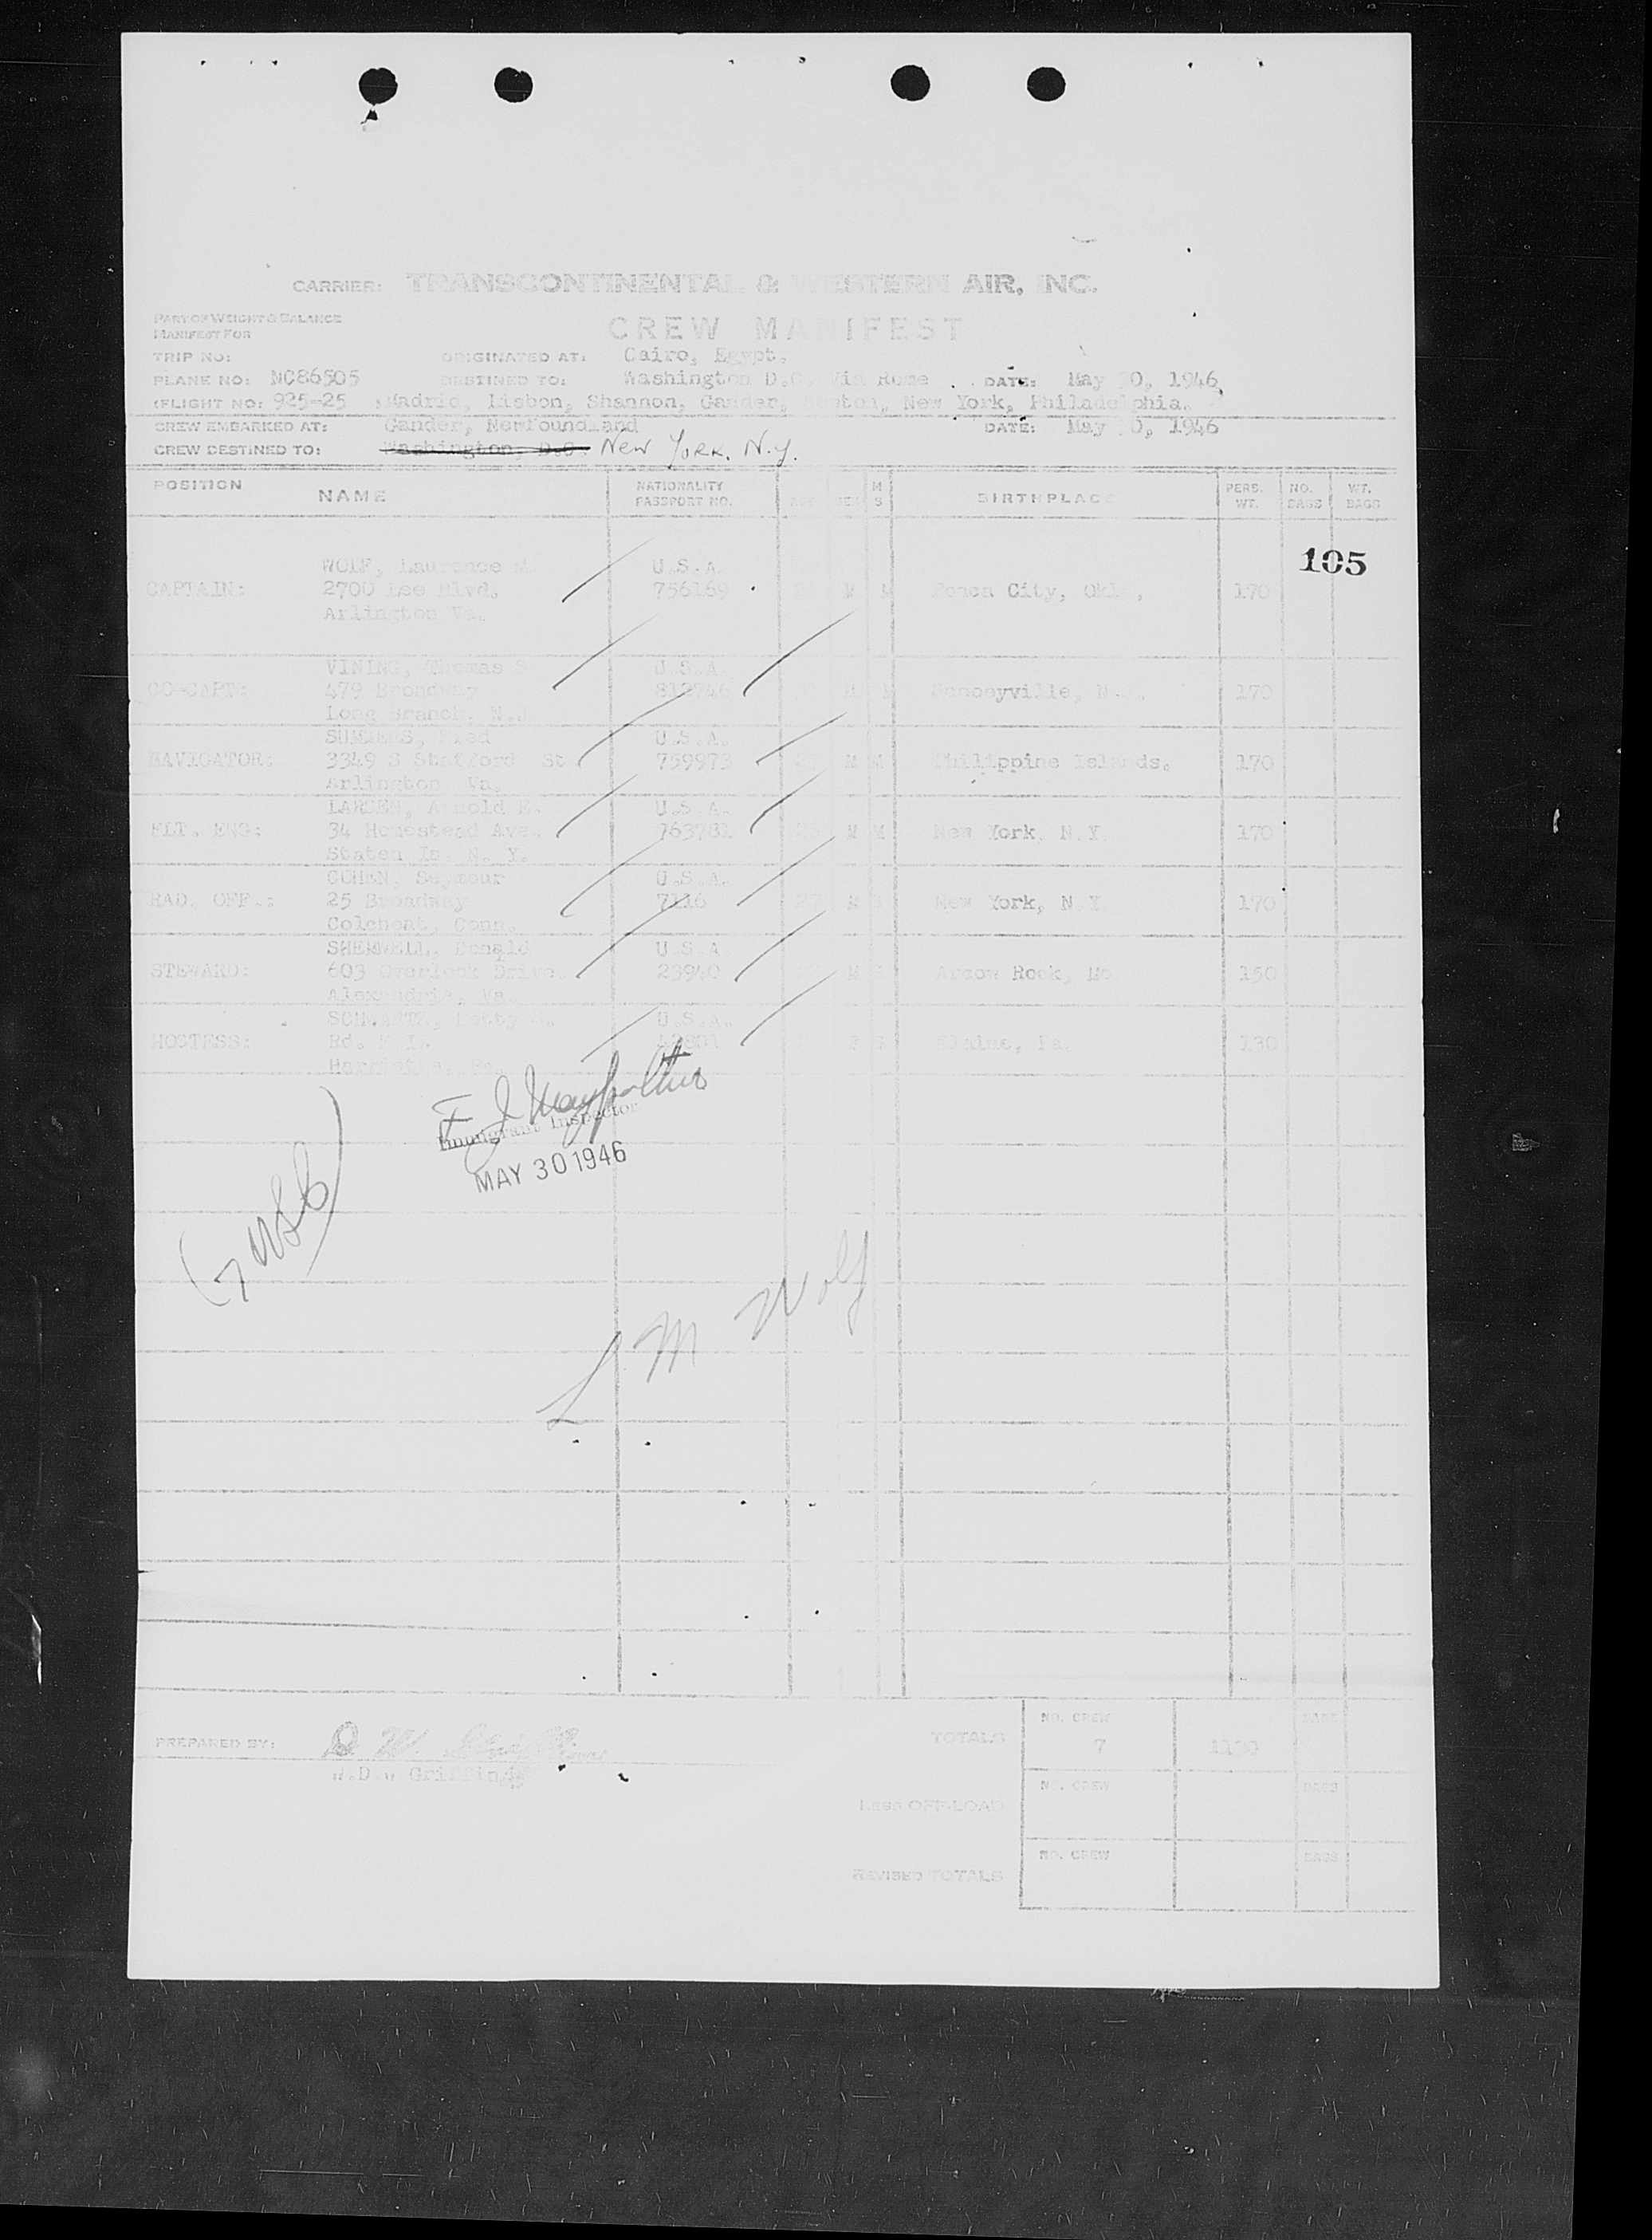 CARRIER: TRANSCONTINENTAL & WESTERN AIR, INC.
PART OF WEIGHT & BALANCE
MANIFEST FOR
CREW MANIFEST
TRIP NO: ORIGINATED AT: Cairo, Egypt.
PLANE NO: NC86505 DESTINED TO: Washington D.C. Via Rome DATE: May 30, 1946
FLIGHT NO: 925-25 Madrid, Lisbon, Shannon, Gander, Boston, New York, Philadelphia.
CREW EMBARKED AT: Gander, Newfoundland DATE: May 30, 1946
CREW DESTINED TO: Washington, D.C. New York, N.Y.
POSITION NAME NATIONALITY PASSPORT NO. AGE SEX M S BIRTHPLACE PERS. WT. NO. BAGS WT. BAGS
105
WOLF, Laurence M. U.S.A.
CAPTAIN: 2700 Lee Blvd. 756169 M M Ponca City, Okla. 170
Arlington Va.
VINING, Thomas S U.S.A.
CO-CAPT: 479 Broadway M M 170
Long Branch, N.J
Fred U.S.A.
NAVIGATOR: 3349 S Stafford St 759973 M M Philippine Islands. 170
Arlington Va.
LARSEN, Arnold E. U.S.A.
FLT. ENG: 34 Homestead Ave. 763781 M M New York, N.Y. 170
Staten Is. N. Y.
COHEN, Seymour U.S.A.
RAD. OFF.: 25 Broadway 7116 27 M S New York, N.Y. 170
Conn.
Donald U.S.A
STEWARD: 603 Overlook Drive. 23940 M Arrow Rock, Mo 150
Alexandria, Va.
SCHWARTZ, Betty U.S.A.
HOSTESS: Rd. F Pa. 130
F J
Immigrant Inspector
MAY 30 1946
(7 USC)
L M Wolf
PREPARED BY:
Griffin
TOTALS NO. CREW 7 1130 BAGS
Less OFF-LOAD NO. CREW BAGS
REVISED TOTALS NO. CREW BAGS